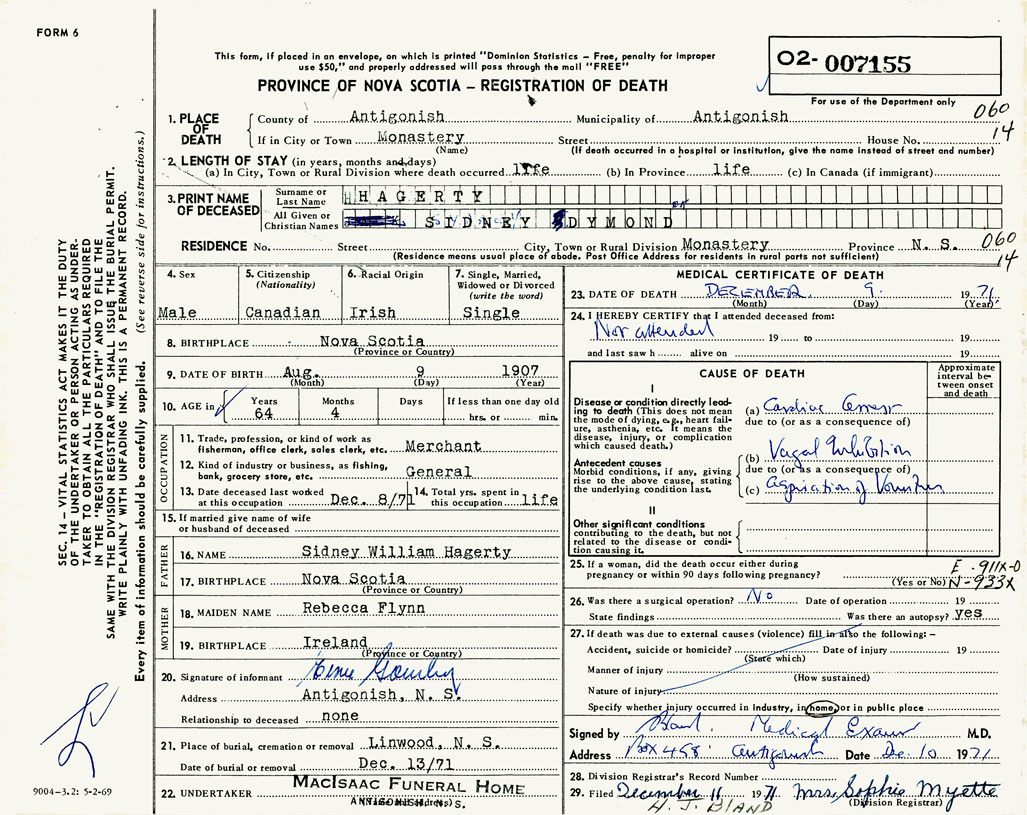 FORM 6
This form, if placed in an envelope, on which is printed "Dominion Statistics – Free, penalty for improper
use $50," and properly addressed will pass through the mail "FREE"
PROVINCE OF NOVA SCOTIA – REGISTRATION OF DEATH
02- 007155
For use of the Department only
060
14
SEC. 14 – VITAL STATISTICS ACT MAKES IT THE DUTY
OF THE UNDERTAKER OR PERSON ACTING AS UNDER-
TAKER TO OBTAIN ALL THE PARTICULARS REQUIRED
IN THE "REGISTRATION OF DEATH" AND TO FILE THE
SAME WITH THE DIVISION REGISTRAR WHO SHALL ISSUE THE BURIAL PERMIT.
WRITE PLAINLY WITH UNFADING INK. THIS IS A PERMANENT RECORD.
Every item of information should be carefully supplied. (See reverse side for instructions.)
1. PLACE OF DEATH
County of Antigonish Municipality of Antigonish
If in City or Town Monastery Street House No.
(Name) (If death occurred in a hospital or institution, give the name instead of street and number)
2. LENGTH OF STAY (in years, months and days)
(a) In City, Town or Rural Division where death occurred life (b) In Province life (c) In Canada (if immigrant)
3. PRINT NAME OF DECEASED
Surname or Last Name HAGERTY
All Given or Christian Names SIDNEY DYMOND
RESIDENCE No. Street City, Town or Rural Division Monastery Province N. S. 060
(Residence means usual place of abode. Post Office Address for residents in rural parts not sufficient) 14
4. Sex
Male
5. Citizenship
(Nationality)
Canadian
6. Racial Origin
Irish
7. Single, Married,
Widowed or Divorced
(write the word)
Single
8. BIRTHPLACE Nova Scotia
(Province or Country)
9. DATE OF BIRTH Aug. 9 1907
(Month) (Day) (Year)
10. AGE in Years Months Days If less than one day old
64 4 hrs. or min.
OCCUPATION
11. Trade, profession, or kind of work as
fisherman, office clerk, sales clerk, etc. Merchant
12. Kind of industry or business, as fishing,
bank, grocery store, etc. General
13. Date deceased last worked
at this occupation Dec. 8/71
14. Total yrs. spent in
this occupation life
15. If married give name of wife
or husband of deceased
FATHER
16. NAME Sidney William Hagerty
17. BIRTHPLACE Nova Scotia
(Province or Country)
MOTHER
18. MAIDEN NAME Rebecca Flynn
19. BIRTHPLACE Ireland
(Province or Country)
20. Signature of informant
Address Antigonish, N. S.
Relationship to deceased none
21. Place of burial, cremation or removal Linwood, N. S.
Date of burial or removal Dec. 13/71
22. UNDERTAKER MACISAAC FUNERAL HOME
ANTIGONISH, N. S.
9004-3.2: 5-2-69
MEDICAL CERTIFICATE OF DEATH
23. DATE OF DEATH DECEMBER 9 1971
(Month) (Day) (Year)
24. I HEREBY CERTIFY that I attended deceased from:
Not attended 19 to 19
and last saw h alive on 19
CAUSE OF DEATH
Approximate
interval be-
tween onset
and death
I
Disease or condition directly lead-
ing to death (This does not mean
the mode of dying, e.g., heart fail-
ure, asthenia, etc. It means the
disease, injury, or complication
which caused death.)
(a) Cardiac Arrest
due to (or as a consequence of)
Antecedent causes
Morbid conditions, if any, giving
rise to the above cause, stating
the underlying condition last.
(b) Vagal Inhibition
due to (or as a consequence of)
(c) Aspiration of Vomitus
II
Other significant conditions
contributing to the death, but not
related to the disease or condi-
tion causing it.
25. If a woman, did the death occur either during
pregnancy or within 90 days following pregnancy?
(Yes or No)
E-911X-0
N-933X
26. Was there a surgical operation? No Date of operation 19
State findings Was there an autopsy? yes
27. If death was due to external causes (violence) fill in also the following:–
Accident, suicide or homicide? Date of injury 19
(State which)
Manner of injury
(How sustained)
Nature of injury
Specify whether injury occurred in industry, in home, or in public place
Signed by Medical Exam M.D.
Address Box 458 Antigonish Date Dec. 10 1971
28. Division Registrar's Record Number
29. Filed December 11 1971 Mrs. Sophie Myette
(Division Registrar)
H. J. BLAND